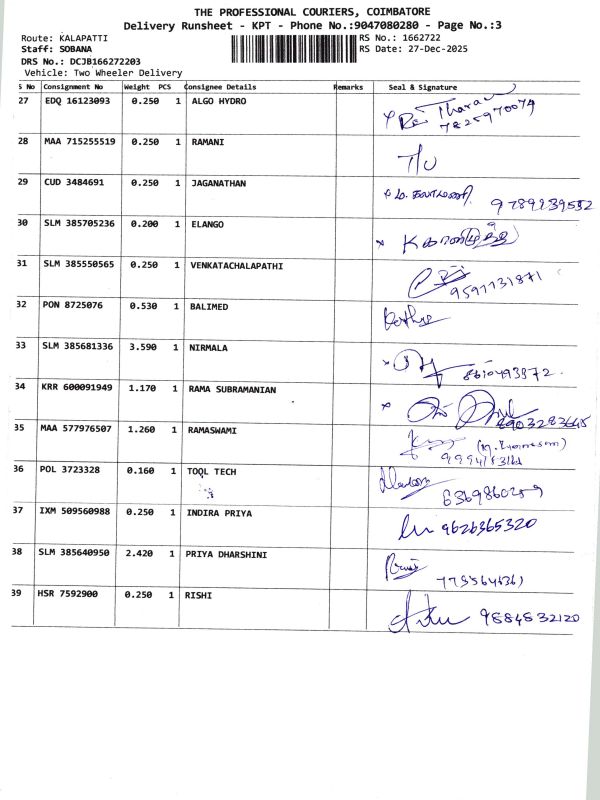 THE PROFESSIONAL COURIERS, COIMBATORE
Delivery Runsheet - KPT - Phone No.:9047080280 - Page No.:3
Route: KALAPATTI RS No.: 1662722
Staff: SOBANA RS Date: 27-Dec-2025
DRS No.: DCJB166272203
Vehicle: Two Wheeler Delivery
S No Consignment No Weight PCS Consignee Details Remarks Seal & Signature
27 EDQ 16123093 0.250 1 ALGO HYDRO
7825970079
28 MAA 715255519 0.250 1 RAMANI T/U
29 CUD 3484691 0.250 1 JAGANATHAN
30 SLM 385705236 0.200 1 ELANGO
31 SLM 385550565 0.250 1 VENKATACHALAPATHI
9597731871
32 PON 8725076 0.530 1 BALIMED
33 SLM 385681336 3.590 1 NIRMALA
34 KRR 600091949 1.170 1 RAMA SUBRAMANIAN
8903283645
35 MAA 577976507 1.260 1 RAMASWAMI
36 POL 3723328 0.160 1 TOOL TECH
37 IXM 509560988 0.250 1 INDIRA PRIYA 9626365320
38 SLM 385640950 2.420 1 PRIYA DHARSHINI
39 HSR 7592900 0.250 1 RISHI 9884832120